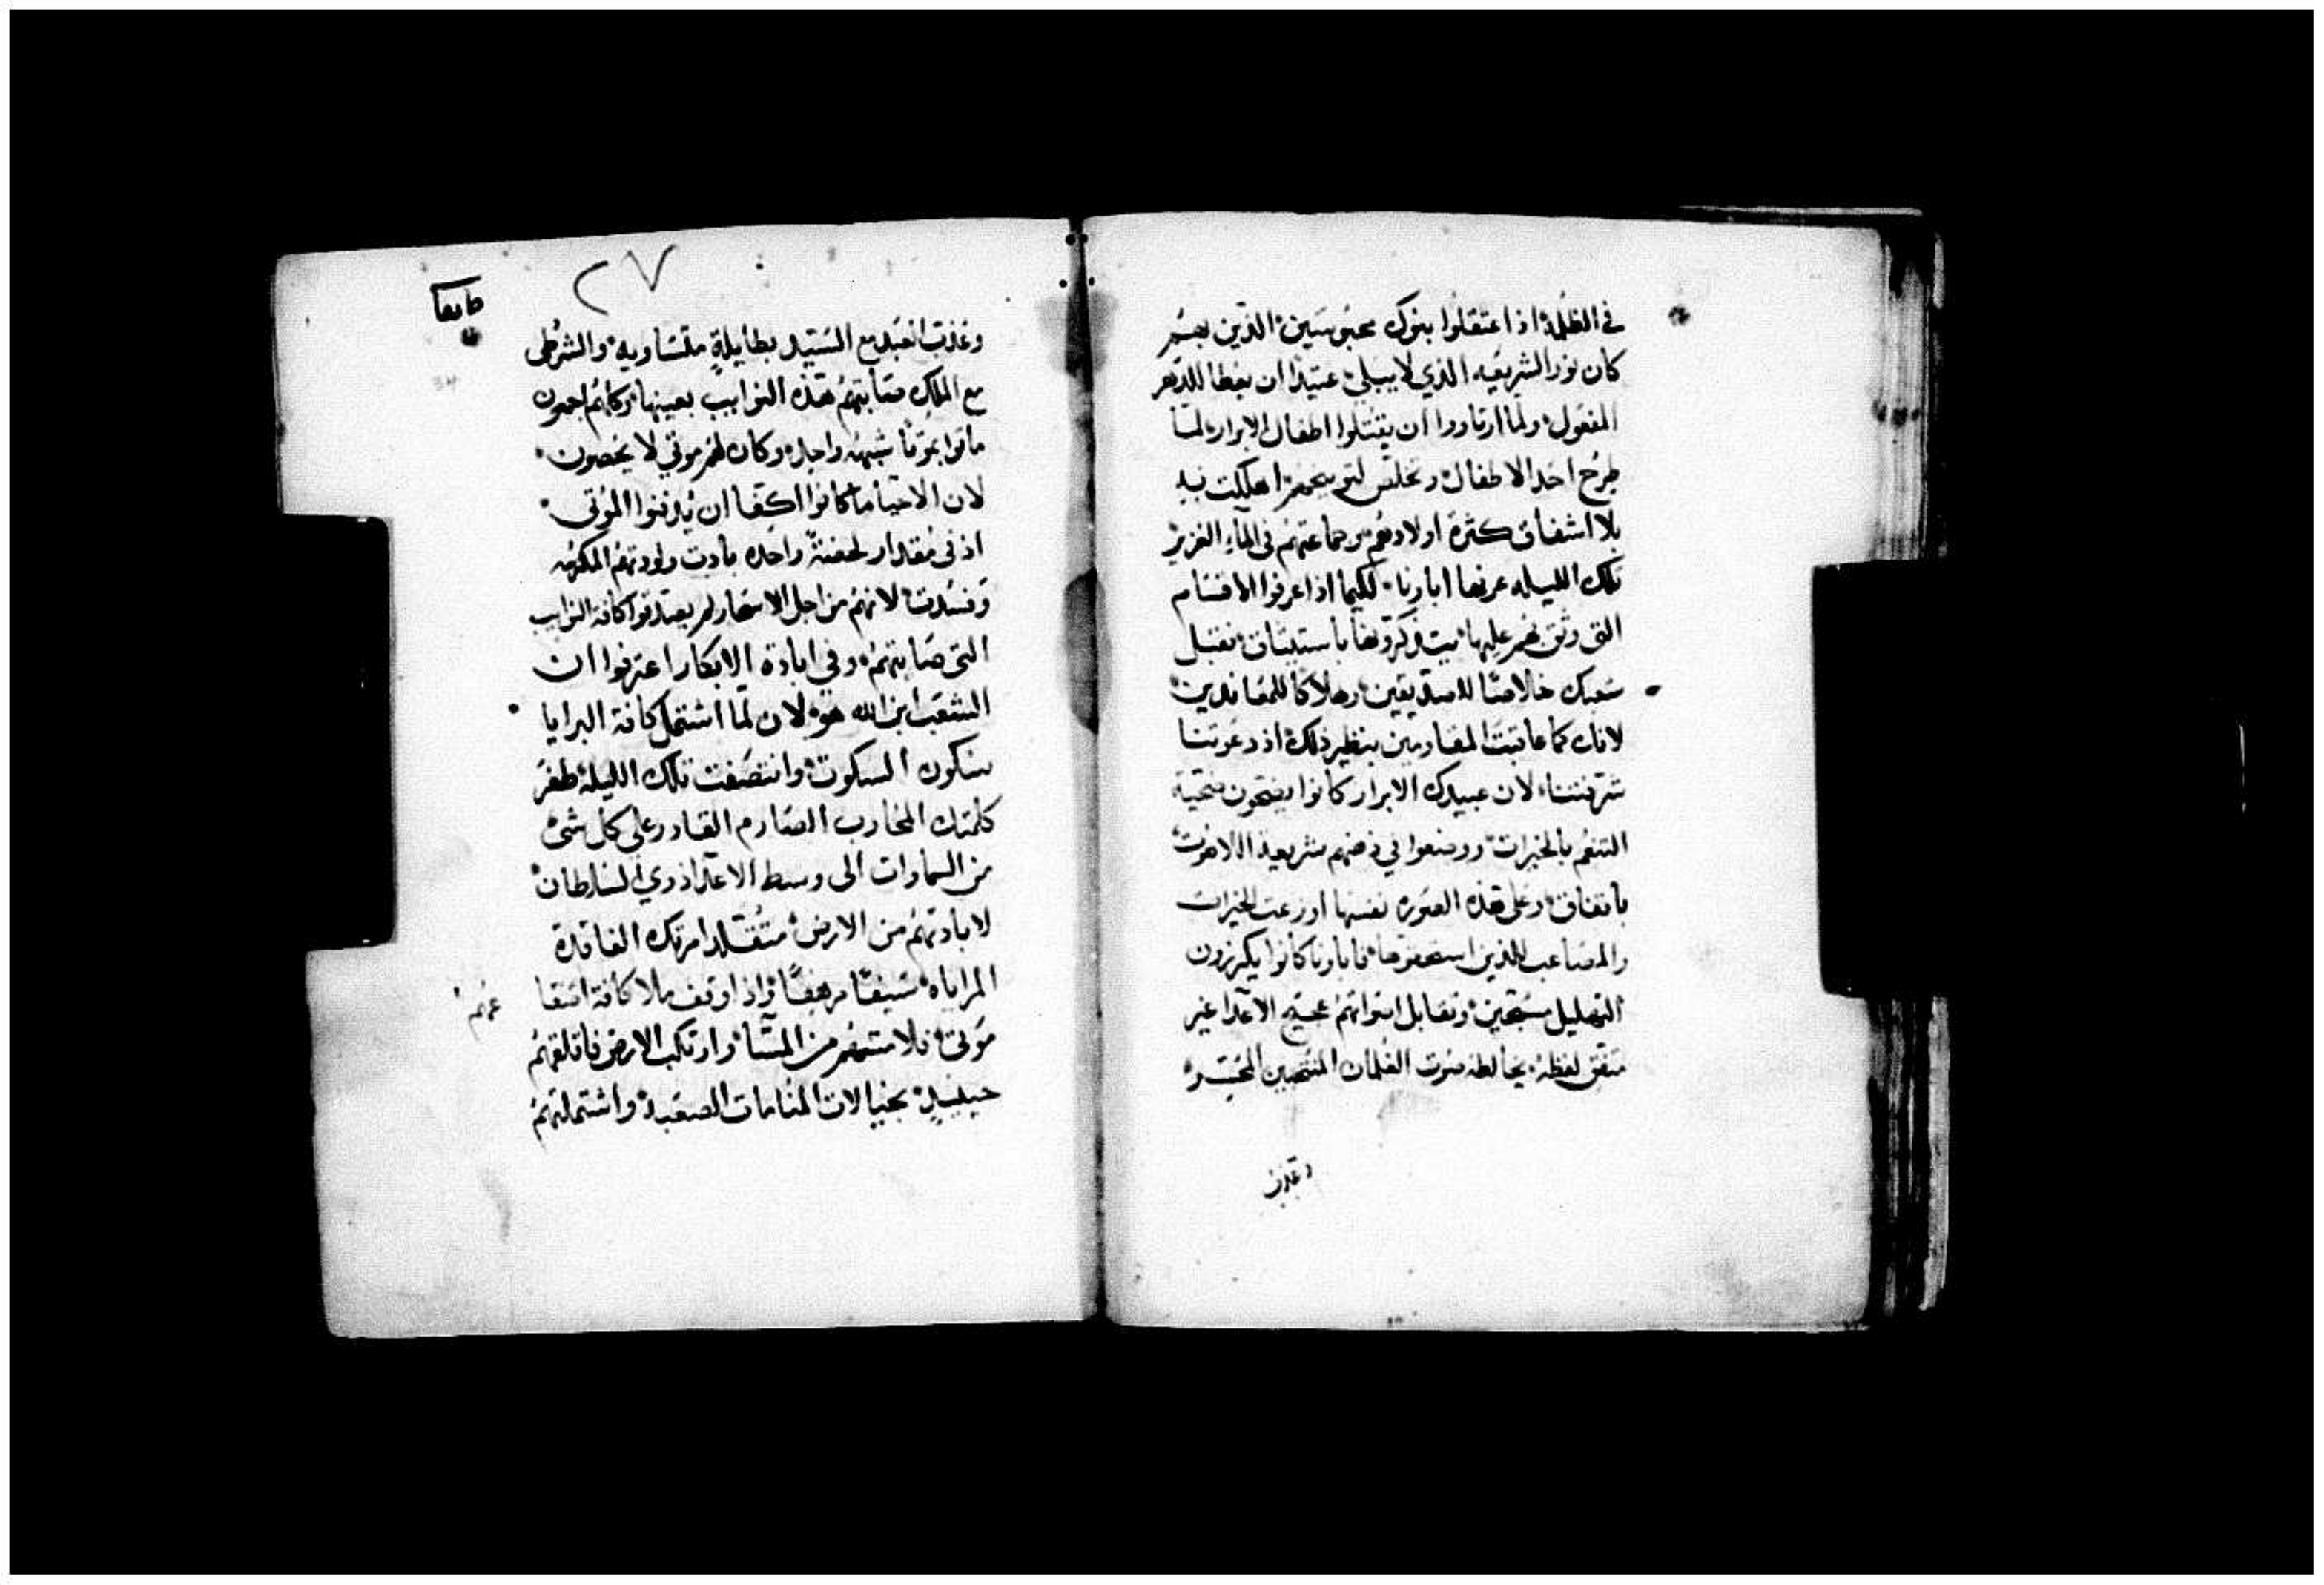 في الظلمة اذا اعتقلوا بنوك محبوسين الذين بهم
كان نور الشريعه الذي لا يبلي عتيدا ان يعطا للدهر
المقول ولما ارتاووا ان يقتلوا اطفال الابرار لما
طرح احد الاطفال وتخلص اهلكت به
بلا اشفاق كثرة اولادهم وجماعتهم في المآء الغزير
تلك الليله عرفها اباونا لكيما اذا عرفوا الاقسام
التي وثق لهم عليها باستيثاق تقبل
شعبك خلاصًا للصديقين وهلاكا للمعاندين
لانك كما عاقبت المقاومين بنظير ذلك اذ دعوتنا
شرفتنا لان عبيدك الابرار كانوا يضحون ضحية
التنعم بالخيرات ووضعوا في ذهنهم شريعة اللاهوت
باتفاق وعلى هذه الصوره نفسها اوزعت الخيرات
والمصاعب للذين استحقوها فاباونا كانوا يكرزون
التهليل مسبحين وتقابل اصواتهم عجيج الاعدا غير
متفق لفظه يخالطه صوت الغلمان المنتحبين
وعذب
٢٧
وعذب العبد مع السيد بطايلةٍ متساويه والشرطي
مع الملك صابتهم هذه النوايب بعينها وكانهم اجمعون
ماتوا بموتًا شبهه واحده وكان لهم موتي لا يحصون
لان الاحيا ما كانوا اكفا ان يدفنوا الموتى
اذ في مقدار لحظة واحده بادت ولودتهم المكرمه
وفسدت لانهم من اجل الاسحار لم يصدقوا كافة النوايب
التي صابتهم وفي ابادة الابكار اعترفوا ان
الشعب ابن الله هو لان لما اشتمل كافة البرايا
سكون السكوت وانتصفت تلك الليلة طفر
كلمتك المحارب الصارم القادر على كل شى
من السماوات الى وسط الاعدا ذوي السلطان
لابادتهم من الارض متقلدا امرتك الفاقدة
المراياه سيفًا مرهفًا واذ اوقف ملا كافة اصقا
عهم
موتي فلامتهم من السمآ وارتكب الارض فاقلقهم
حينيذٍ بخيالات المنامات الصعبة واشتملتهم